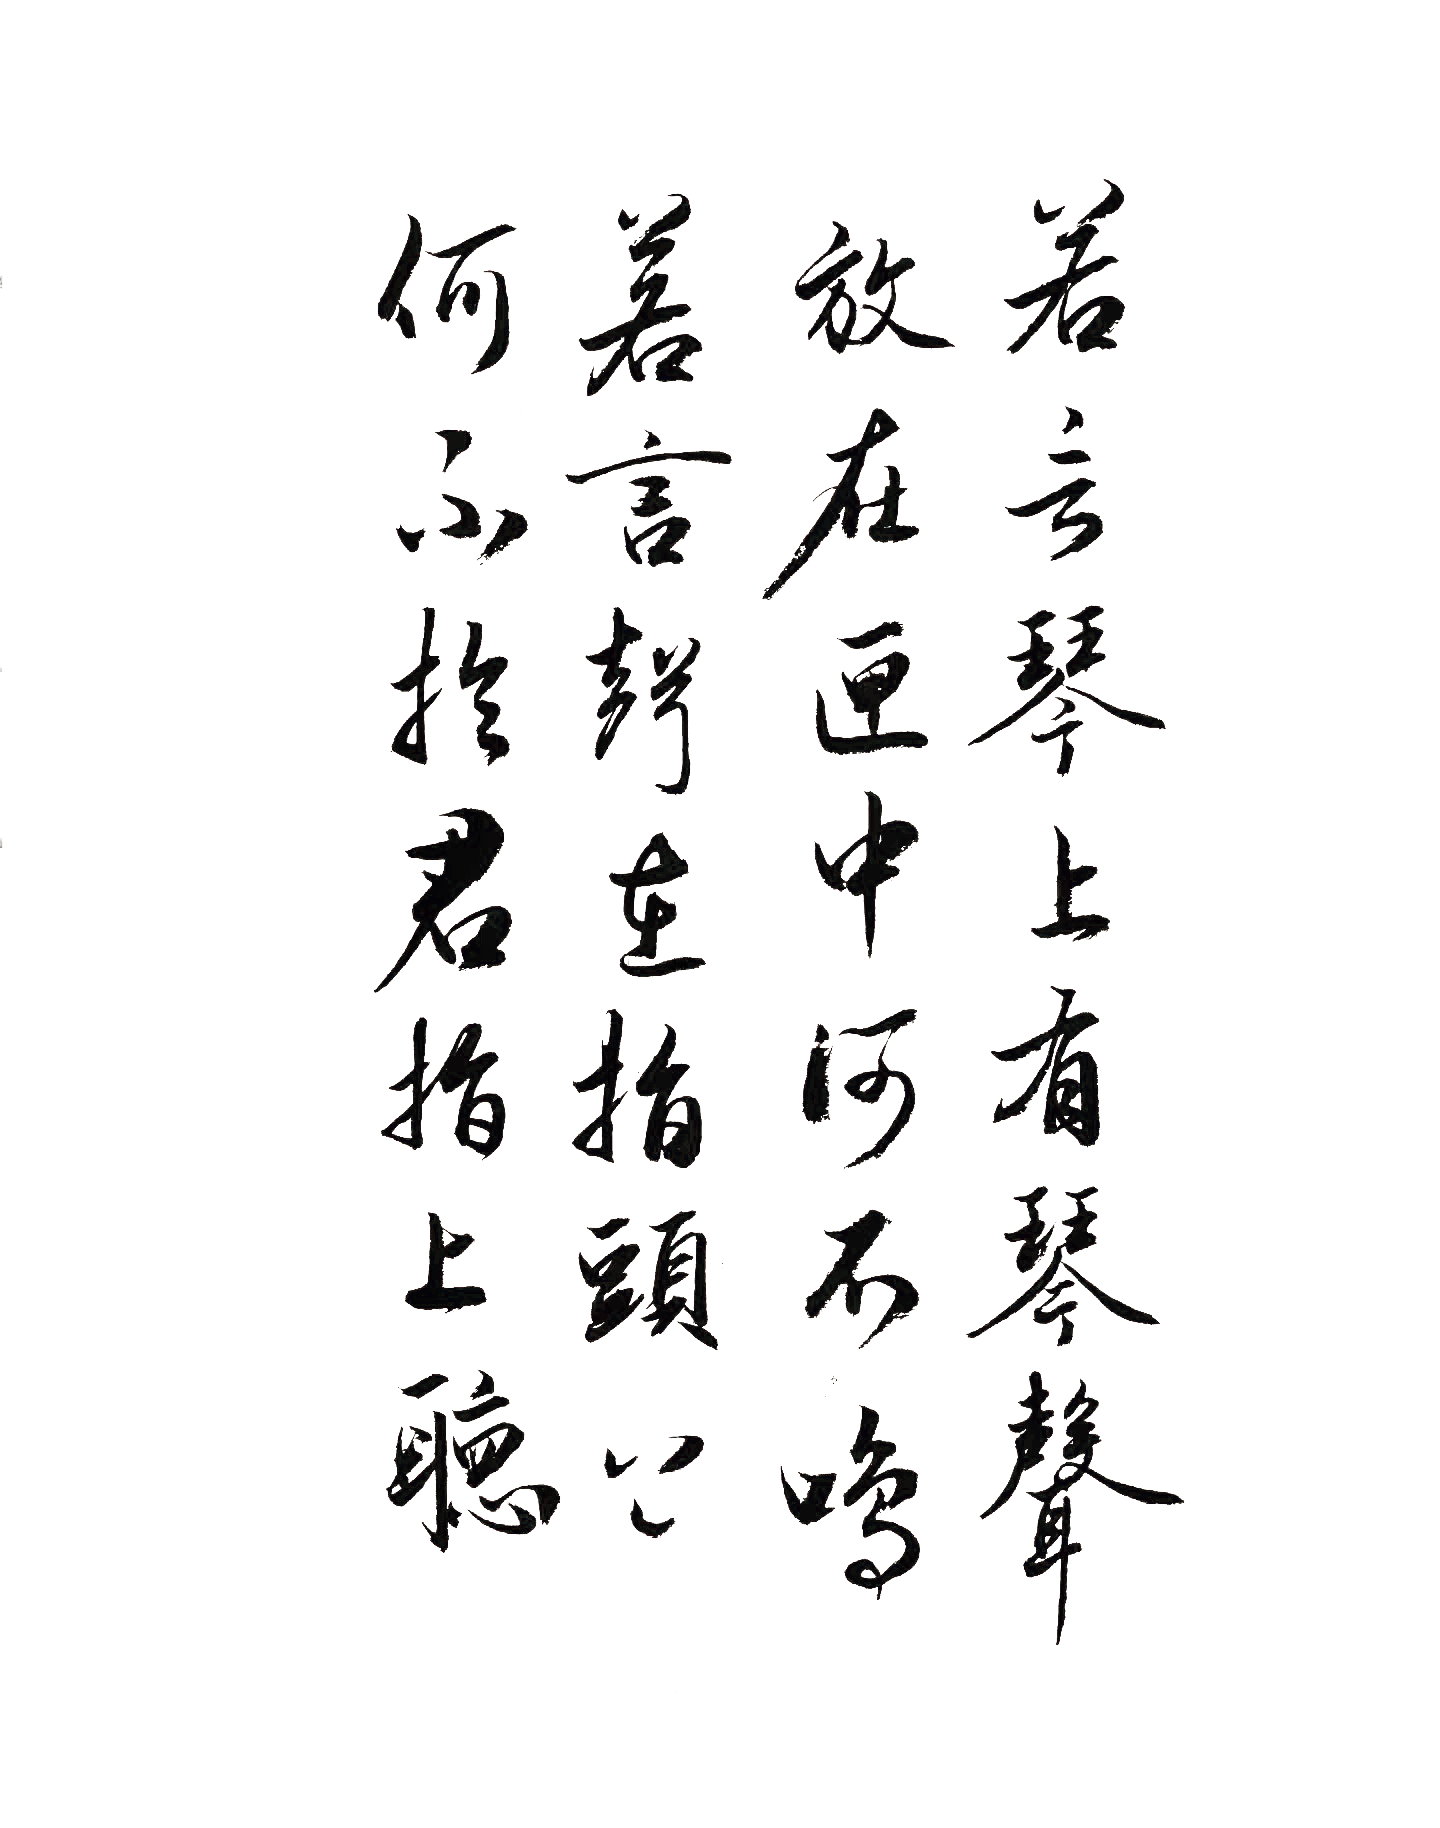 若言琴上有琴聲
放在匣中何不鳴
若言聲在指頭上
何不於君指上聽